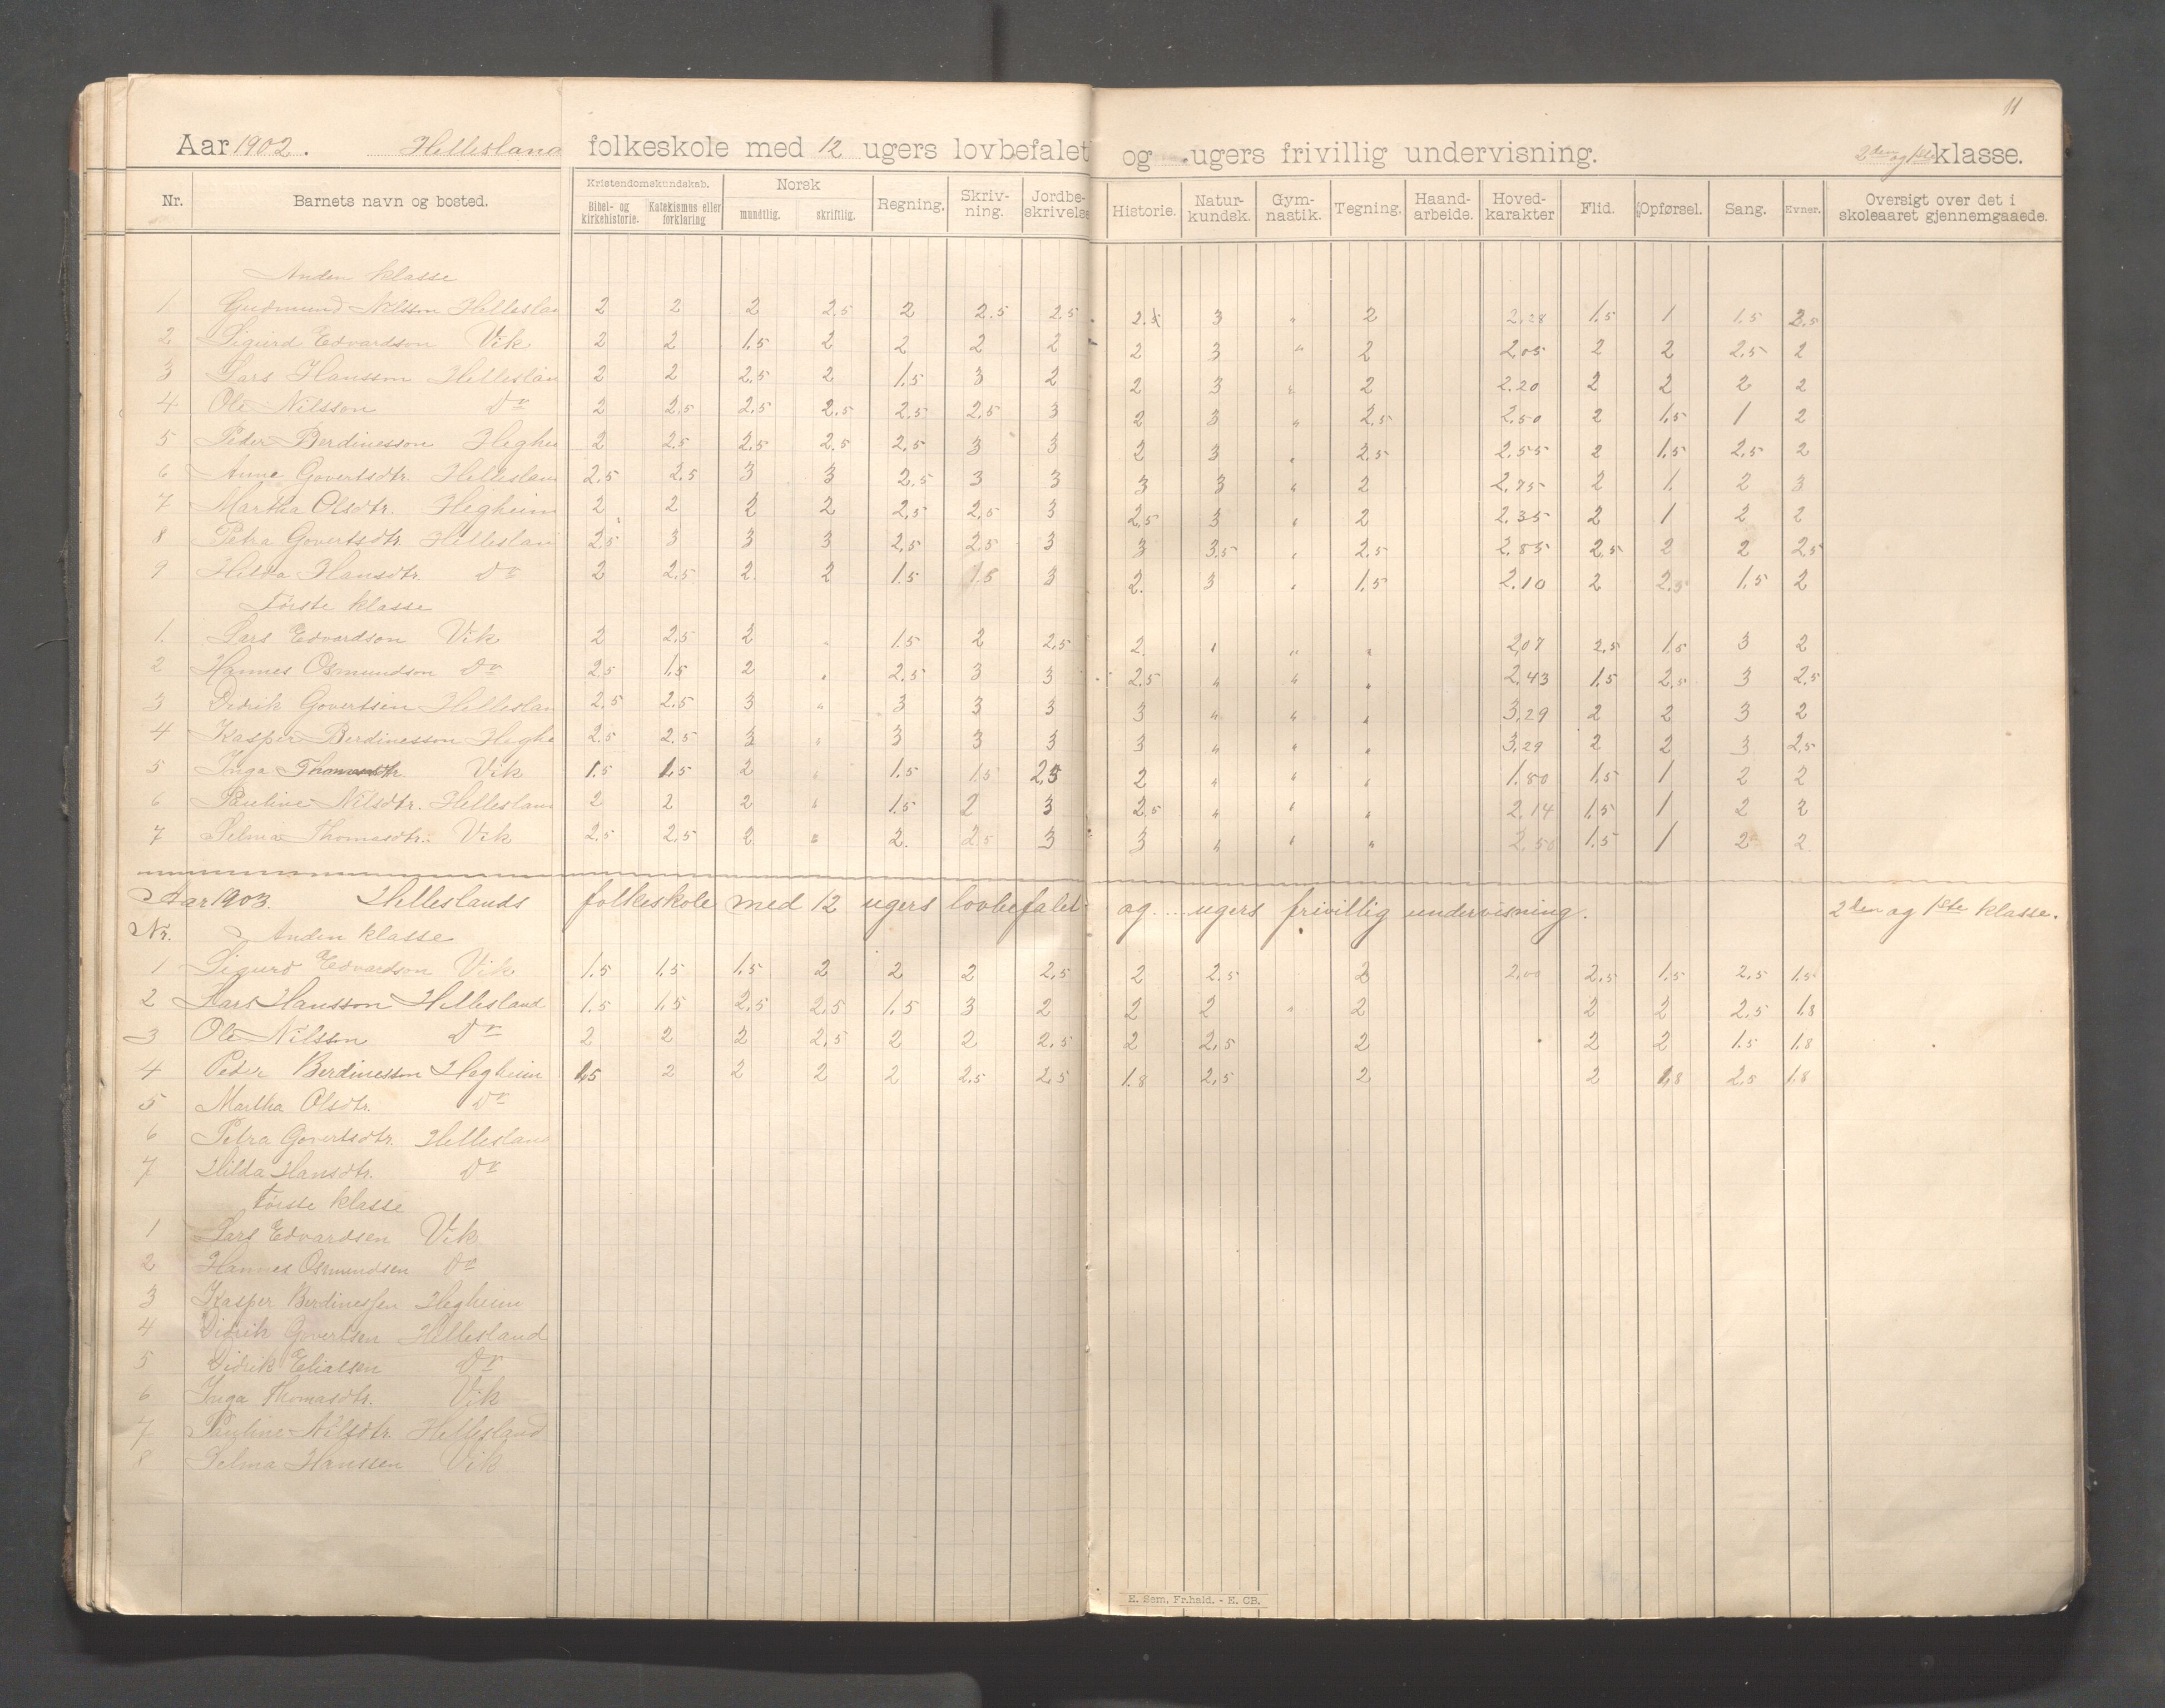 11
Aar 1902. Hellesland folkeskole med 12 ugers lovbefalet og ugers frivillig undervisning. 2den og 1ste klasse.
Nr. Barnets navn og bosted. Kristendomskundskab. Bibel- og kirkehistorie. Katekismus eller forklaring Norsk mundtlig. skriftlig. Regning. Skriv-ning. Jordbe-skrivelse Historie. Natur-kundsk. Gym-nastik. Tegning. Haand-arbeide. Hoved-karakter Flid. Opførsel. Sang. Evner. Oversigt over det i skoleaaret gjennemgaaede.
Anden klasse
1 Gudmund Nilsson Helleslan 2 2 2 2.5 2 2.5 2.5 3 " 2 2,28 1.5 1 1.5 2,5
2 Sigurd Edvardson Vik 2 2 1.5 2 2 2 2 2 3 " 2 2,05 2 2 2,5 2
3 Lars Hansson Helleslan 2 2 2,5 2 1,5 3 2 2 3 " 2 2.20 2 2 2 2
4 Ole Nilsson Do 2 2,5 2,5 2,5 2,5 2,5 3 2 3 " 2,5 2,50 2 1,5 1 2
5 Peder Berdinesson Heghei 2 2.5 2,5 2.5 2,5 3 3 2 3 " 2.5 2.55 2 1,5 2,5 2
6 Anna Govertsdtr. Hellesland 2.5 2,5 3 3 2,5 3 3 3 3 " 2 2,75 2 1. 2 3
7 Martha Olsdtr. Hegheim 2 2 2 2 2,5 2,5 3 2,5 3 " 2 2.35 2 1 2 2
8 Petra Govertsdtr. Helleslan 2.5 3 3 3 2,5 2.5 3 3 3.5 " 2,5 2,85 2,5 2 2 2,5
9 Hilda Hansdtr. Do 2 2,5 2. 2 1.5 1.5 3 2. 3 " 1,5 2.10 2 2.5 1,5 2
Første klasse
1. Lars Edvardson Vik 2 2,5 2 " 1.5 2 2,5 2. " " " 2,07 2,5 1.5 3 2
2 Hannes Osmundson Do 2.5 1,5 2 " 2.5 3 3 2.5 " " " 2,43 1,5 2,5 3 2.5
3 Didrik Govertsen Helleslan 2,5 2.5 3 " 3 3 3 3 " " " 3,29 2 2 3 2
4 Kasper Berdinesson Heghe 2.5 2.5 3 " 3 3 3 3 " " " 3,29 2 2 3 2,5
5 Inga Vik 1.5 1,5 2 " 1.5 1.5 2,5 2 " " " 1.80 1,5 1 2 2
6 Pauline Nilsdtr. Hellesland 2 2 2 " 1.5 2 3 2.5 " " " 2.14 1,5 1 2 2
7 Selma Thomasdtr. Vik 2.5 2,5 2 " 2. 2.5 3 3 " " " 2,50 1.5 1 2 2
Aar 1903. Helleslands folkeskole med 12 ugers lovbefalet og ... ugers frivillig undervisning. 2den og 1ste klasse.
Nr. Anden klasse
1 Sigurd Edvardson Vik 1.5 1,5 1,5 2 2 2 2,5 2 2.5 2 2,00 2,5 1.5 2,5 1,5
2 Lars Hansson Hellesland 1.5 1,5 2,5 2,5 1,5 3 2 2 2 " 2 2 2 2,5 1.8
3 Ole Nilsson Do 2 2 2 2,5 2 2 2,5 2 2,5 2 2 2 1.5 1.8
4 Peder Berdinesson Hegheim 1,5 2 2 2 2 2,5 2,5 1.8 2,5 2 2 1,8 2,5 1.8
5 Martha Olsdtr. Do
6 Petra Govertsdtr. Hellesland
7 Hilda Hansdtr. Do
Første klasse
1 Lars Edvardsen Vik
2 Hannes Osmundsen Do
3 Kasper Berdinessen Hegheim
4 Didrik Govertsen Hellesland
5 Didrik Eliassen Do
6 Inga Thomasdtr. Vik
7 Pauline Nilsdtr. Hellesland
8 Selma Hanssen Vik
E. Sem, Fr.hald. - E. CB.